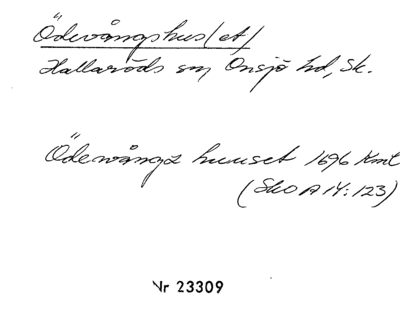 Ödevångshus/et/
Hallaröds sn, Onsjö hd, Sk.
Ödewångz huuset 1696 Kmt
(Sko A 14:123)
Nr 23309